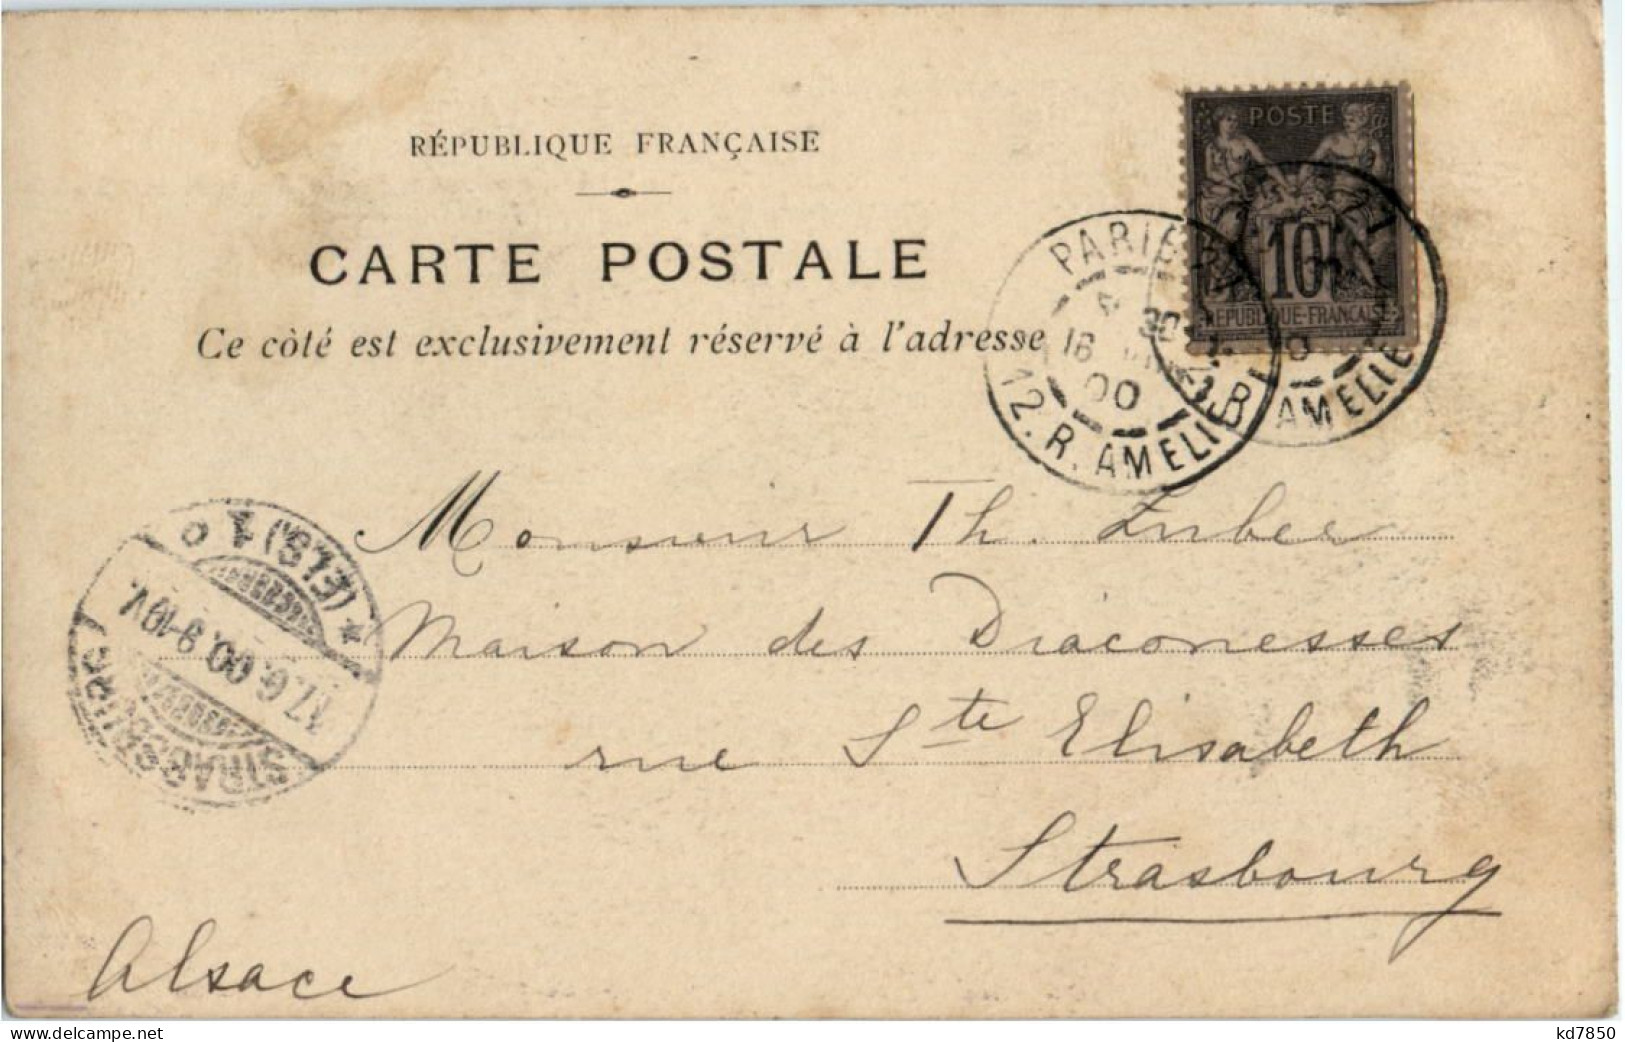 RÉPUBLIQUE FRANÇAISE
CARTE POSTALE
Ce côté est exclusivement réservé à l'adresse
POSTE
10
REPUBLIQUE-FRANÇAISE
PARIS
16
00
12. R. AMELIE
21
AMELIE
Monsieur Th. Zuber
Maison des Diaconesses
rue Ste Elisabeth
Strasbourg
Alsace
STRASSBURG (ELS.) 1 c
17.6.00. 9-10V.
delcampe.net
kd7850